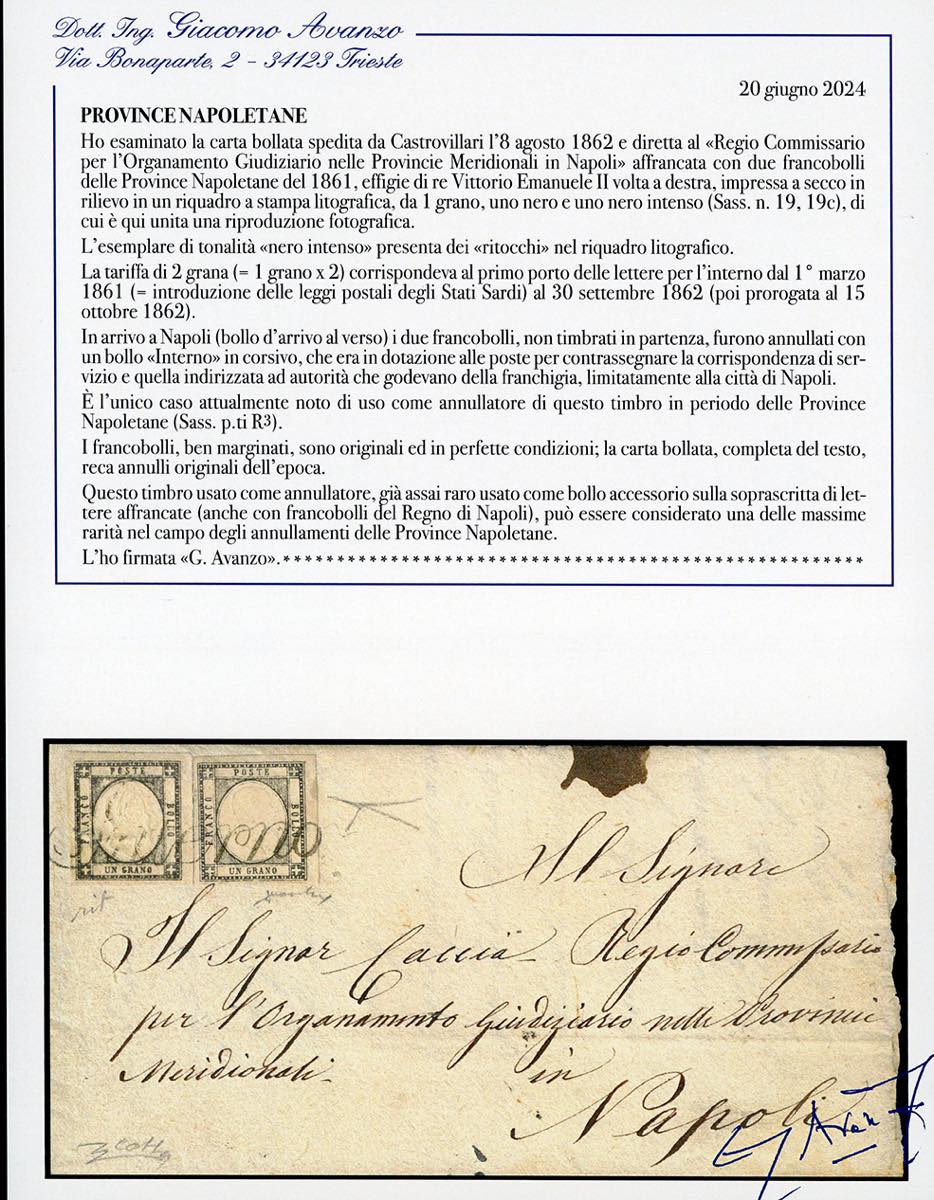 Dott. Ing. Giacomo Avanzo
Via Bonaparte, 2 - 34123 Trieste
20 giugno 2024
PROVINCE NAPOLETANE
Ho esaminato la carta bollata spedita da Castrovillari l'8 agosto 1862 e diretta al «Regio Commissario
per l'Organamento Giudiziario nelle Provincie Meridionali in Napoli» affrancata con due francobolli
delle Province Napoletane del 1861, effigie di re Vittorio Emanuele II volta a destra, impressa a secco in
rilievo in un riquadro a stampa litografica, da 1 grano, uno nero e uno nero intenso (Sass. n. 19, 19c), di
cui è qui unita una riproduzione fotografica.
L'esemplare di tonalità «nero intenso» presenta dei «ritocchi» nel riquadro litografico.
La tariffa di 2 grana (= 1 grano x 2) corrispondeva al primo porto delle lettere per l'interno dal 1° marzo
1861 (= introduzione delle leggi postali degli Stati Sardi) al 30 settembre 1862 (poi prorogata al 15
ottobre 1862).
In arrivo a Napoli (bollo d'arrivo al verso) i due francobolli, non timbrati in partenza, furono annullati con
un bollo «Interno» in corsivo, che era in dotazione alle poste per contrassegnare la corrispondenza di ser-
vizio e quella indirizzata ad autorità che godevano della franchigia, limitatamente alla città di Napoli.
È l'unico caso attualmente noto di uso come annullatore di questo timbro in periodo delle Province
Napoletane (Sass. p.ti R3).
I francobolli, ben marginati, sono originali ed in perfette condizioni; la carta bollata, completa del testo,
reca annulli originali dell'epoca.
Questo timbro usato come annullatore, già assai raro usato come bollo accessorio sulla soprascritta di let-
tere affrancate (anche con francobolli del Regno di Napoli), può essere considerato una delle massime
rarità nel campo degli annullamenti delle Province Napoletane.
L'ho firmata «G. Avanzo». ******************************************************
POSTE
FRANCO
BOLLO
UN GRANO
POSTE
FRANCO
BOLLO
UN GRANO
rit
All Signore
Il Signor Caccia Regio Commissario
per l'Organamento Giudiziario nelle Provincie
Meridionali
in
Napoli